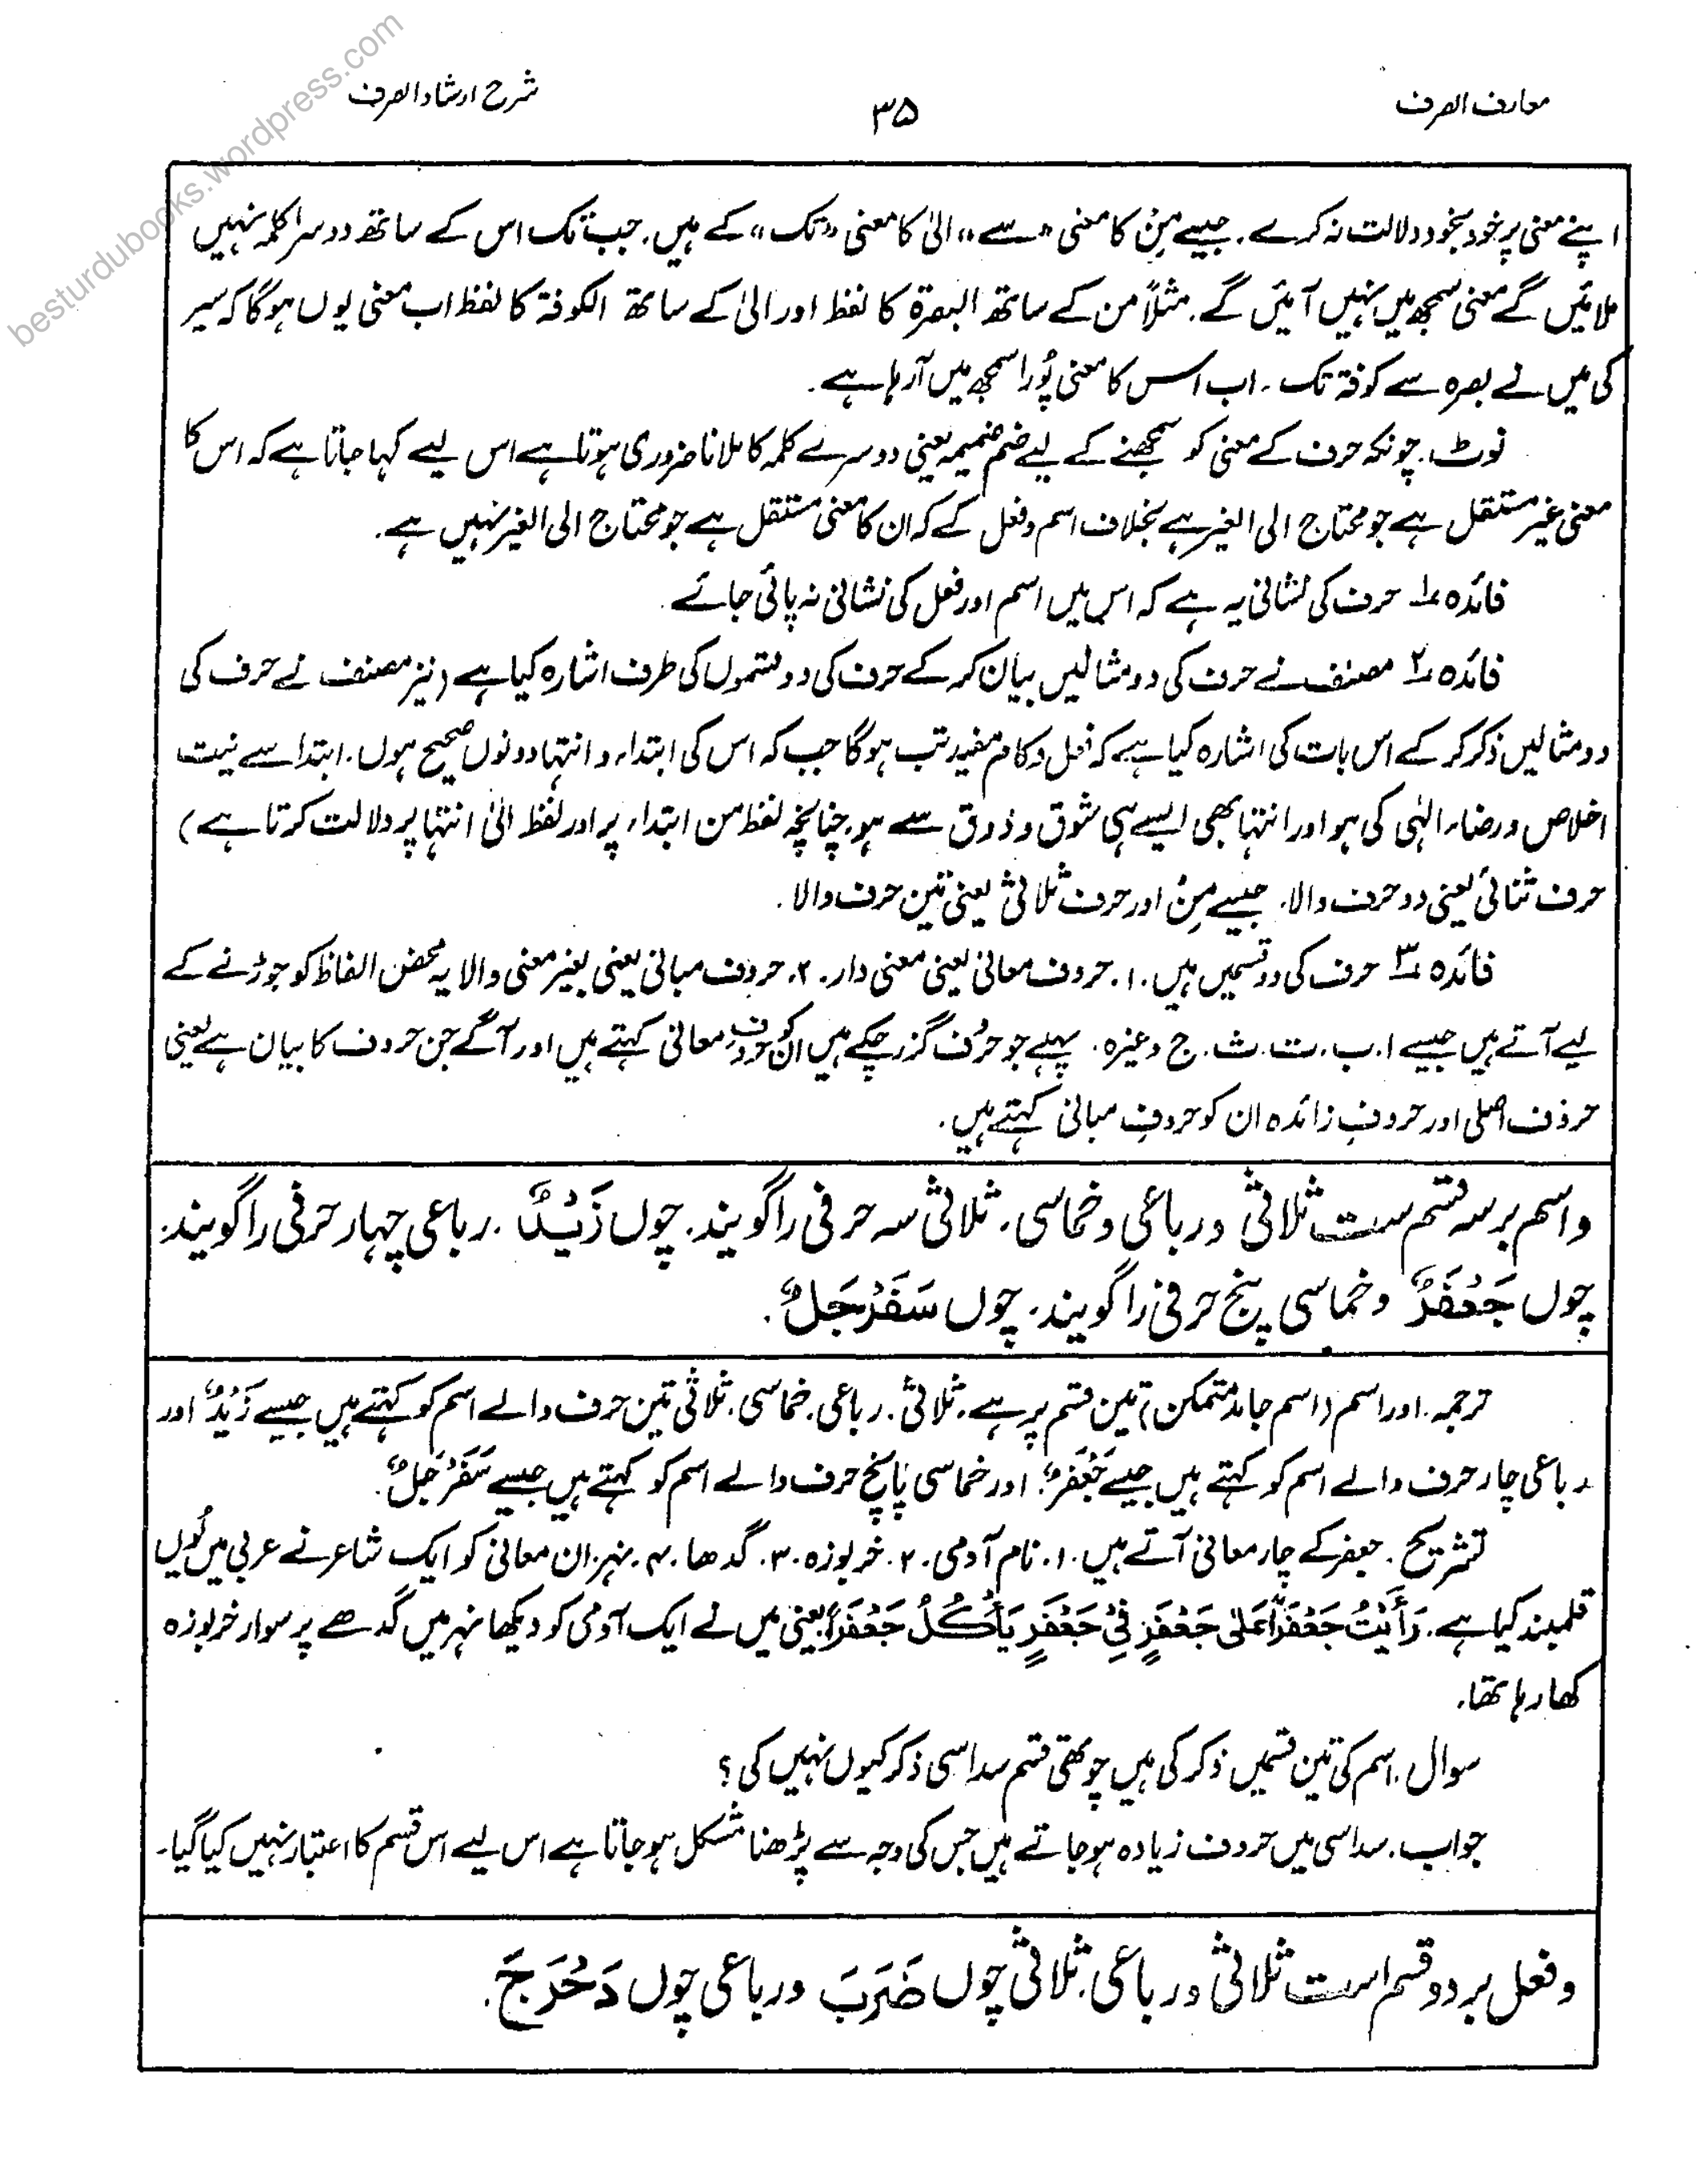 معارف الصرف
۳۵
شرح ارشاد الصرف
besturdubooks.wordpress.com
اپنے معنی پر خود بخود دلالت نہ کرے۔ جیسے مِنْ کا معنی "سے"، الیٰ کا معنی "تک" کے ہیں۔ جب تک اس کے ساتھ دوسرا کلمہ نہیں
ملائیں گے معنی سمجھ میں نہیں آئیں گے۔ مثلاً من کے ساتھ البصرۃ کا لفظ اور الیٰ کے ساتھ الکوفۃ کا لفظ اب معنی یوں ہوگا کہ سیر
کی میں نے بصرہ سے کوفۃ تک۔ اب اس کا معنی پُورا سمجھ میں آرہا ہے۔
نوٹ۔ چونکہ حرف کے معنی کو سمجھنے کے لیے ضم ضمیمہ یعنی دوسرے کلمہ کا ملانا ضروری ہوتا ہے اس لیے کہا جاتا ہے کہ اس کا
معنی غیر مستقل ہے جو محتاج الی الغیر ہے بخلاف اسم و فعل کے کہ ان کا معنی مستقل ہے جو محتاج الی الغیر نہیں ہے۔
فائدہ ۱؎ حرف کی نشانی یہ ہے کہ اس میں اسم اور فعل کی نشانی نہ پائی جائے۔
فائدہ ۲؎ مصنف نے حرف کی دو مثالیں بیان کر کے حرف کی دو قسموں کی طرف اشارہ کیا ہے (نیز مصنف نے حرف کی
دو مثالیں ذکر کر کے اس بات کی اشارہ کیا ہے کہ فعل و کام مفید تب ہوگا جب کہ اس کی ابتداء و انتہا دونوں صحیح ہوں۔ ابتدا سے نیت
اخلاص و رضاء الٰہی کی ہو اور انتہا بھی ایسے ہی شوق و ذوق سے ہو۔ چنانچہ لفظ من ابتداء پر اور لفظ الیٰ انتہا پر دلالت کرتا ہے)
حرف ثنائی یعنی دو حرف والا۔ جیسے مِنْ اور حرف ثلاثی یعنی تین حرف والا۔
فائدہ ۳؎ حرف کی دو قسمیں ہیں۔ ۱۔ حروف معانی یعنی معنی دار۔ ۲۔ حروف مبانی یعنی بغیر معنی والا یہ محض الفاظ کو جوڑنے کے
لیے آتے ہیں جیسے ا۔ ب۔ ت۔ ث۔ ج وغیرہ۔ پہلے جو حرُف گزر چکے ہیں ان کو حروفِ معانی کہتے ہیں اور آگے جن حروف کا بیان ہے یعنی
حروف اصلی اور حروفِ زائدہ ان کو حروفِ مبانی کہتے ہیں۔
و اسم بر سہ قسم ست ثلاثی و رباعی و خماسی۔ ثلاثی سہ حرفی را گویند۔ چوں زَیْدٌ۔ رباعی چہار حرفی را گویند۔
چوں جَعْفَرٌ و خماسی پنج حرفی را گویند۔ چوں سَفَرْجَلٌ۔
ترجمہ۔ اور اسم (اسم جامد متمکن) تین قسم پر ہے۔ ثلاثی۔ رباعی۔ خماسی۔ ثلاثی تین حرف والے اسم کو کہتے ہیں جیسے زَیْدٌ اور
رباعی چار حرف والے اسم کو کہتے ہیں جیسے جَعْفَرٌ۔ اور خماسی پانچ حرف والے اسم کو کہتے ہیں جیسے سَفَرْجَلٌ۔
تشریح۔ جعفر کے چار معانی آتے ہیں۔ ۱۔ نام آدمی۔ ۲۔ خربوزہ۔ ۳۔ گدھا۔ ۴۔ نہر۔ ان معانی کو ایک شاعر نے عربی میں یُوں
قلمبند کیا ہے۔ رَأَیْتُ جَعْفَرًا عَلیٰ جَعْفَرٍ فِیْ جَعْفَرٍ یَأْکُلُ جَعْفَرًا یعنی میں نے ایک آدمی کو دیکھا نہر میں گدھے پر سوار خربوزہ
کھا رہا تھا۔
سوال۔ اسم کی تین قسمیں ذکر کی ہیں چوتھی قسم سداسی ذکر کیوں نہیں کی؟
جواب۔ سداسی میں حروف زیادہ ہو جاتے ہیں جس کی وجہ سے پڑھنا مشکل ہو جاتا ہے اس لیے اس قسم کا اعتبار نہیں کیا گیا۔
و فعل بر دو قسم است ثلاثی و رباعی۔ ثلاثی چوں ضَرَبَ و رباعی چوں دَحْرَجَ۔